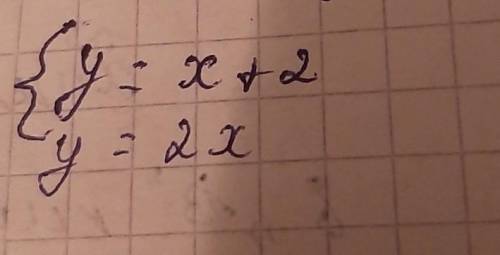 y = x + 2
y = 2x